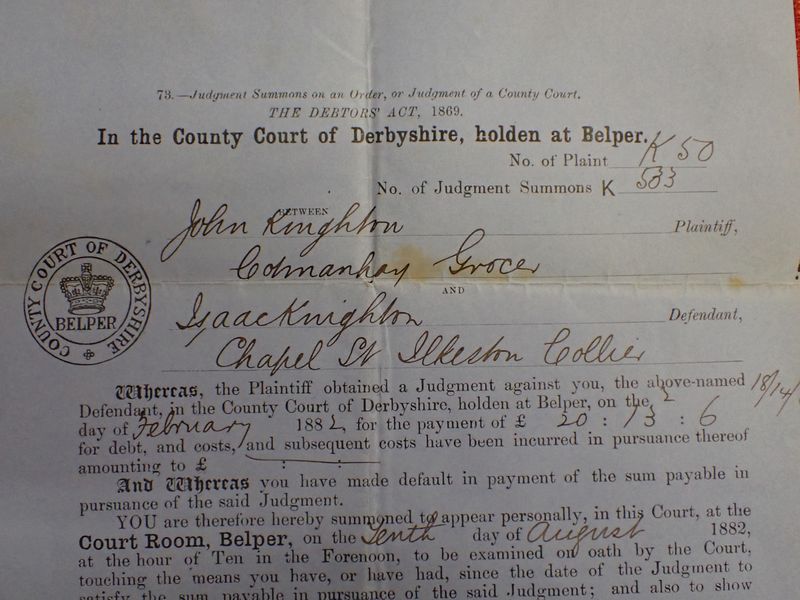 73.—Judgment Summons on an Order, or Judgment of a County Court.
THE DEBTORS' ACT, 1869.
In the County Court of Derbyshire, holden at Belper.
No. of Plaint K 50
No. of Judgment Summons K 533
BETWEEN
John Knighton Plaintiff,
Cotmanhay Grocer
AND
Isaac Knighton Defendant,
Chapel St Ilkeston Collier
COUNTY COURT OF DERBYSHIRE
BELPER
Whereas, the Plaintiff obtained a Judgment against you, the above-named
Defendant, in the County Court of Derbyshire, holden at Belper, on the 2
18/14/
day of February 1882, for the payment of £ 20 : 13 : 6
for debt, and costs, and subsequent costs have been incurred in pursuance thereof
amounting to £ : :
And Whereas you have made default in payment of the sum payable in
pursuance of the said Judgment.
YOU are therefore hereby summoned to appear personally, in this Court, at the
Court Room, Belper, on the Tenth day of August 1882,
at the hour of Ten in the Forenoon, to be examined on oath by the Court,
touching the means you have, or have had, since the date of the Judgment to
satisfy the sum payable in pursuance of the said Judgment; and also to show